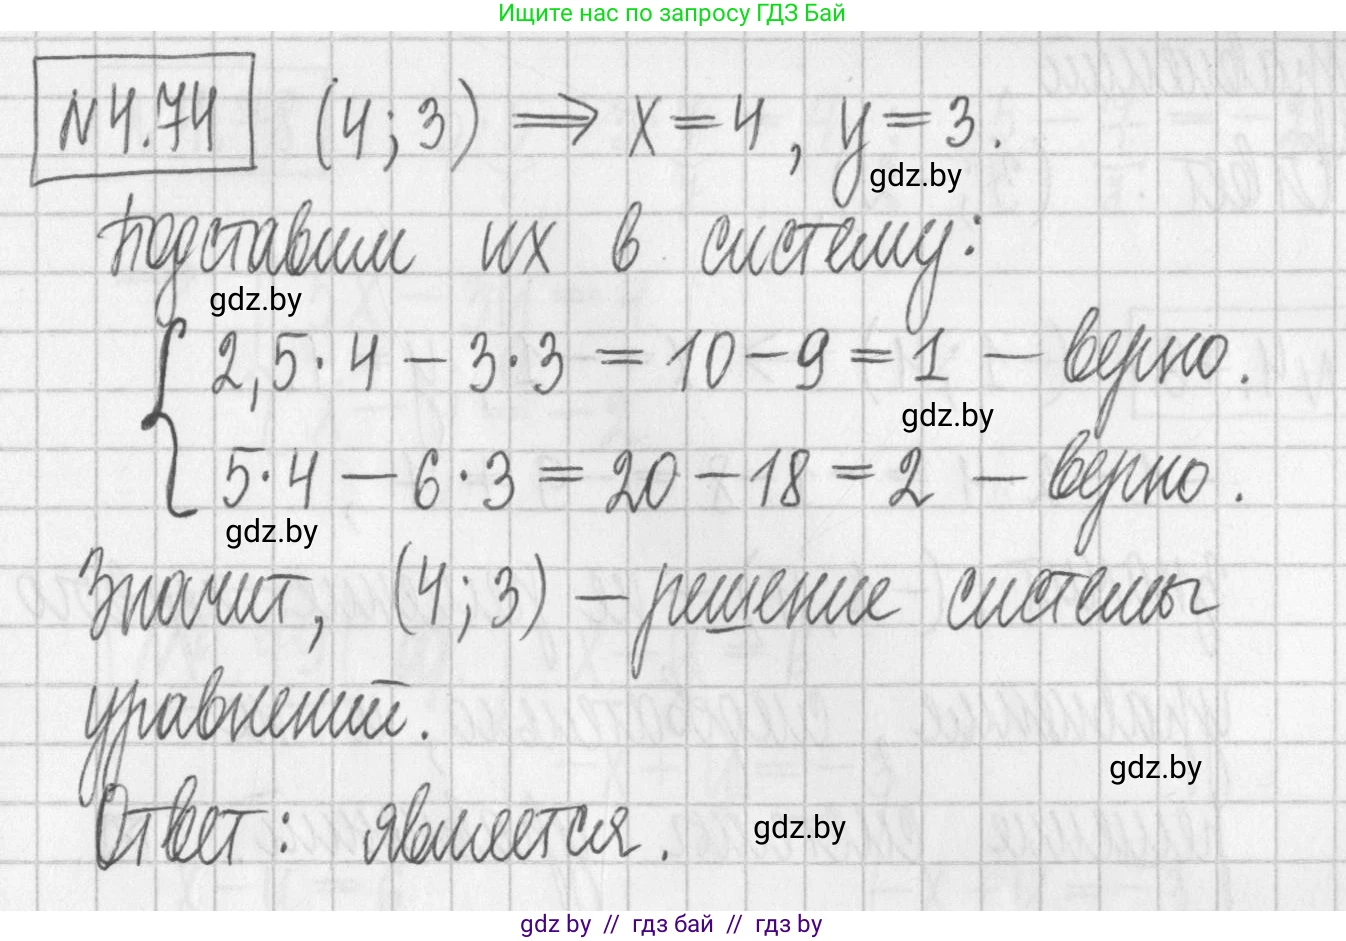 Ищите нас по запросу ГДЗ Бай
№4.74 (4; 3) ⟹ x = 4, y = 3.
gdz.by
Подставим их в систему:
gdz.by
{ 2,5·4 − 3·3 = 10 − 9 = 1 — верно.
gdz.by
5·4 − 6·3 = 20 − 18 = 2 — верно.
gdz.by
Значит, (4; 3) — решение системы
уравнений.
gdz.by
Ответ: является.
gdz.by
gdz by // гдз бай // гдз by